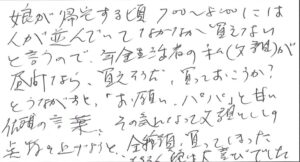 娘が帰宅する頃 7:00〜8:00には
人が並んでいてなかなか買えない
と言うので年金生活者の私(父親)が
昼前なら、買えそうだ、買っておこうか?
というながすと、「お願い、パパ」と甘い
依頼の言葉、その気になって父親としての
点数を上げようと、全種類買ってしまった
娘は大喜びでした